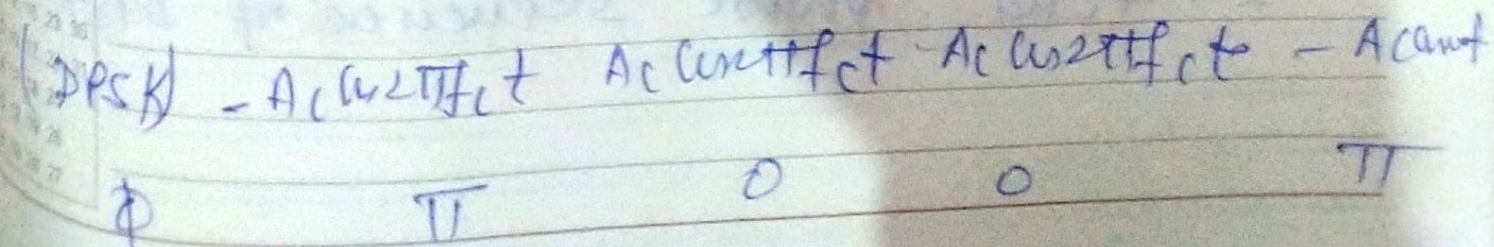 (DPSK) - Ac Cos2πfct Ac Cos2πfct Ac Cos2πfct - Ac
ϕ π 0 0 π